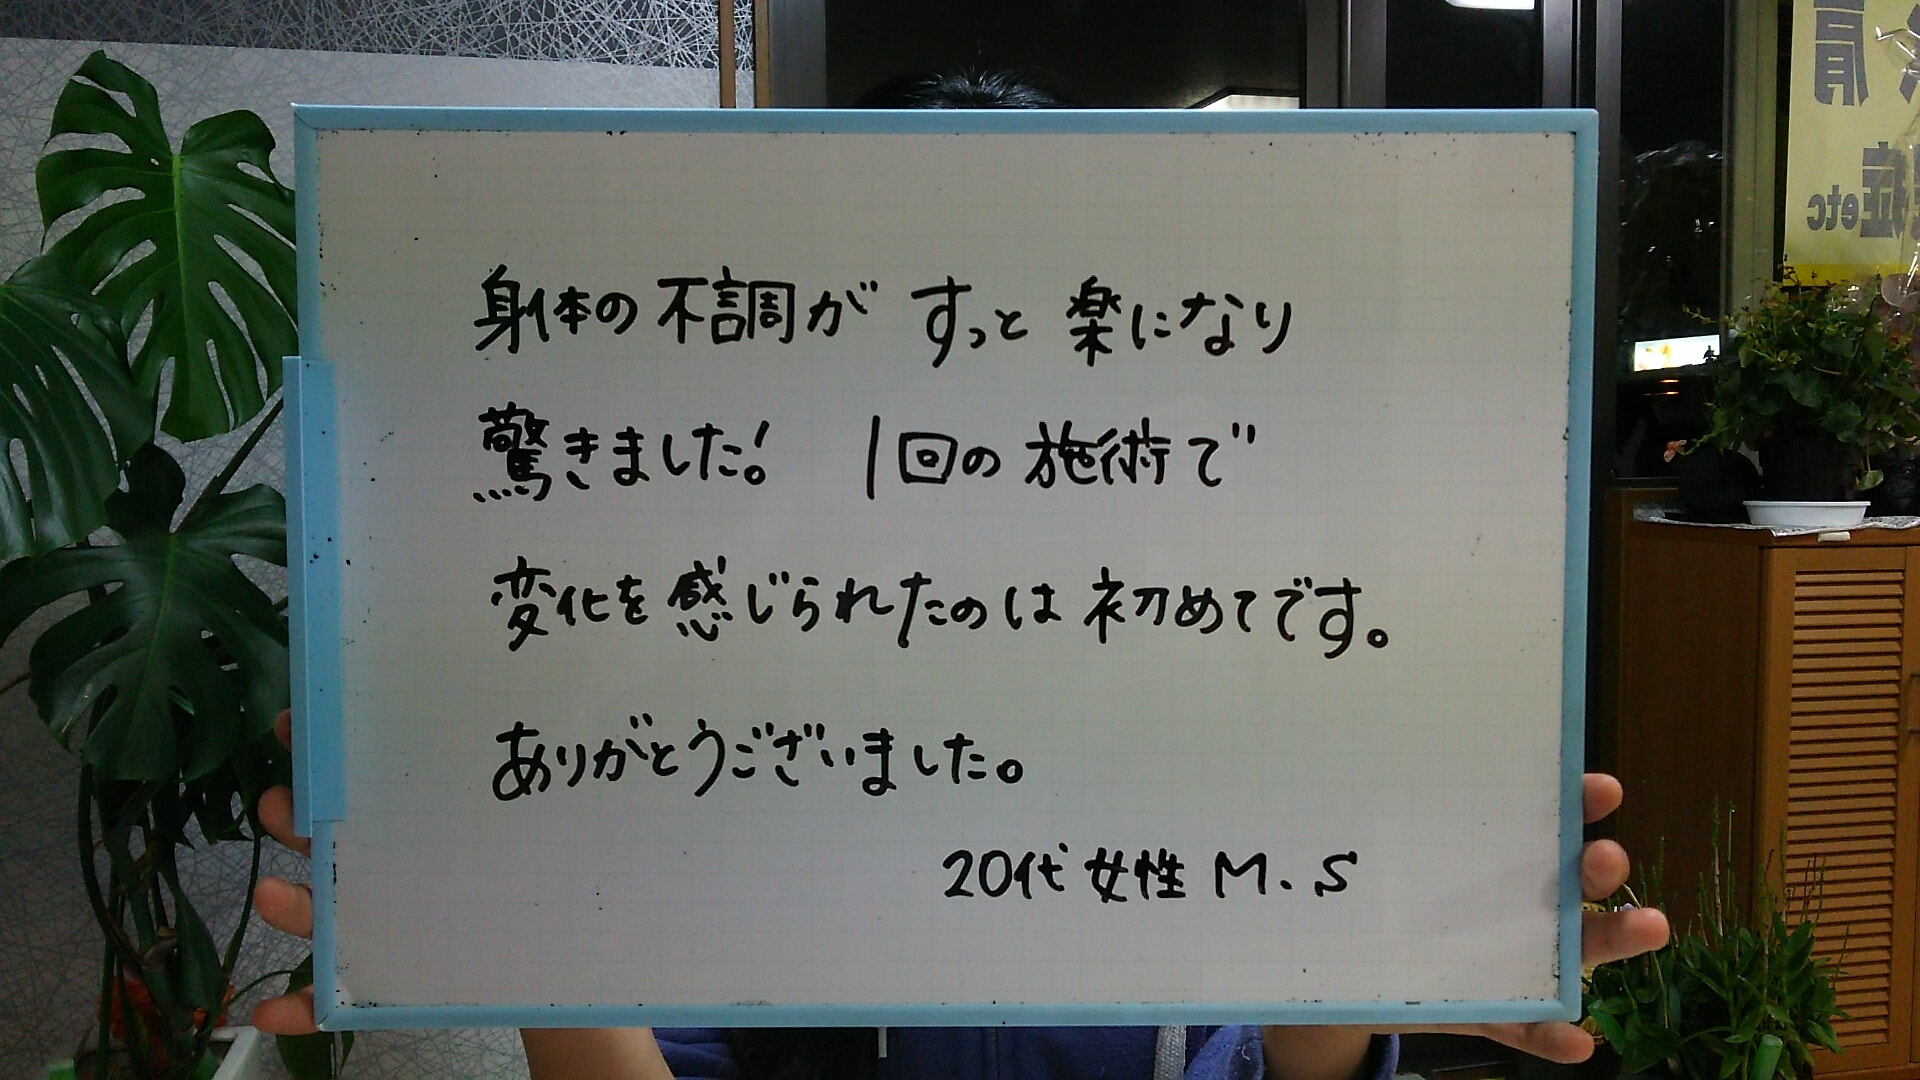 身体の不調がすっと楽になり
驚きました! 1回の施術で
変化を感じられたのは初めてです。
ありがとうございました。
20代女性 M.S
肩
症etc